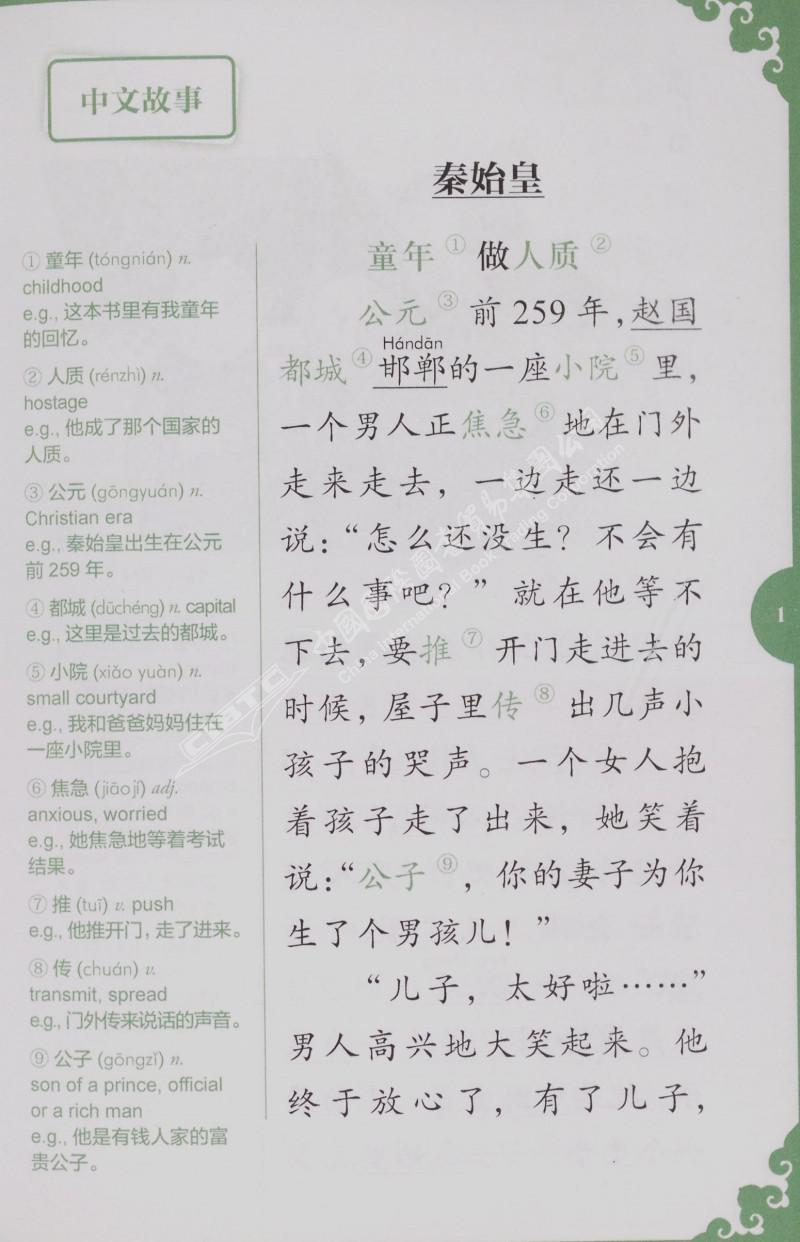 中文故事
秦始皇
① 童年 (tóngnián) n.
childhood
e.g., 这本书里有我童年
的回忆。
② 人质 (rénzhì) n.
hostage
e.g., 他成了那个国家的
人质。
③ 公元 (gōngyuán) n.
Christian era
e.g., 秦始皇出生在公元
前 259 年。
④ 都城 (dūchéng) n. capital
e.g., 这里是过去的都城。
⑤ 小院 (xiǎo yuàn) n.
small courtyard
e.g., 我和爸爸妈妈住在
一座小院里。
⑥ 焦急 (jiāojí) adj.
anxious, worried
e.g., 她焦急地等着考试
结果。
⑦ 推 (tuī) v. push
e.g., 他推开门，走了进来。
⑧ 传 (chuán) v.
transmit, spread
e.g., 门外传来说话的声音。
⑨ 公子 (gōngzǐ) n.
son of a prince, official
or a rich man
e.g., 他是有钱人家的富
贵公子。
童年① 做人质②
公元③ 前 259 年，赵国
Hándān
都城④邯郸的一座小院⑤里，
一个男人正焦急⑥地在门外
走来走去，一边走还一边
说：“怎么还没生？不会有
什么事吧？”就在他等不
下去，要推⑦开门走进去的
时候，屋子里传⑧出几声小
孩子的哭声。一个女人抱
着孩子走了出来，她笑着
说：“公子⑨，你的妻子为你
生了个男孩儿！”
“儿子，太好啦……”
男人高兴地大笑起来。他
终于放心了，有了儿子，
1
CIBTC 中國國際圖書貿易集團公司
China International Book Trading Corporation